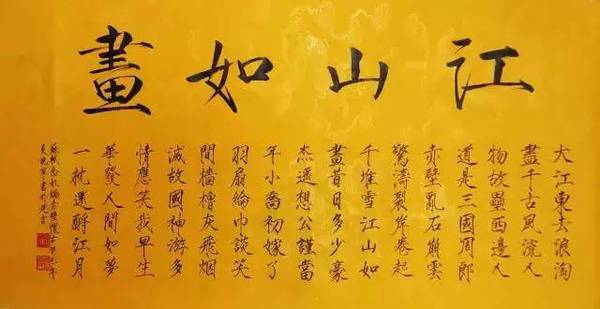 江山如畫
大江東去浪淘
盡千古風流人
物故壘西邊人
道是三國周郎
赤壁亂石崩雲
驚濤裂岸卷起
千堆雪江山如
畫昔日多少豪
杰遥想公謹當
年小喬初嫁了
羽扇綸巾談笑
間檣櫓灰飛烟
滅故國神游多
情應笑我早生
華發人間如夢
一枕還酹江月
蘇軾念奴嬌赤壁懷古